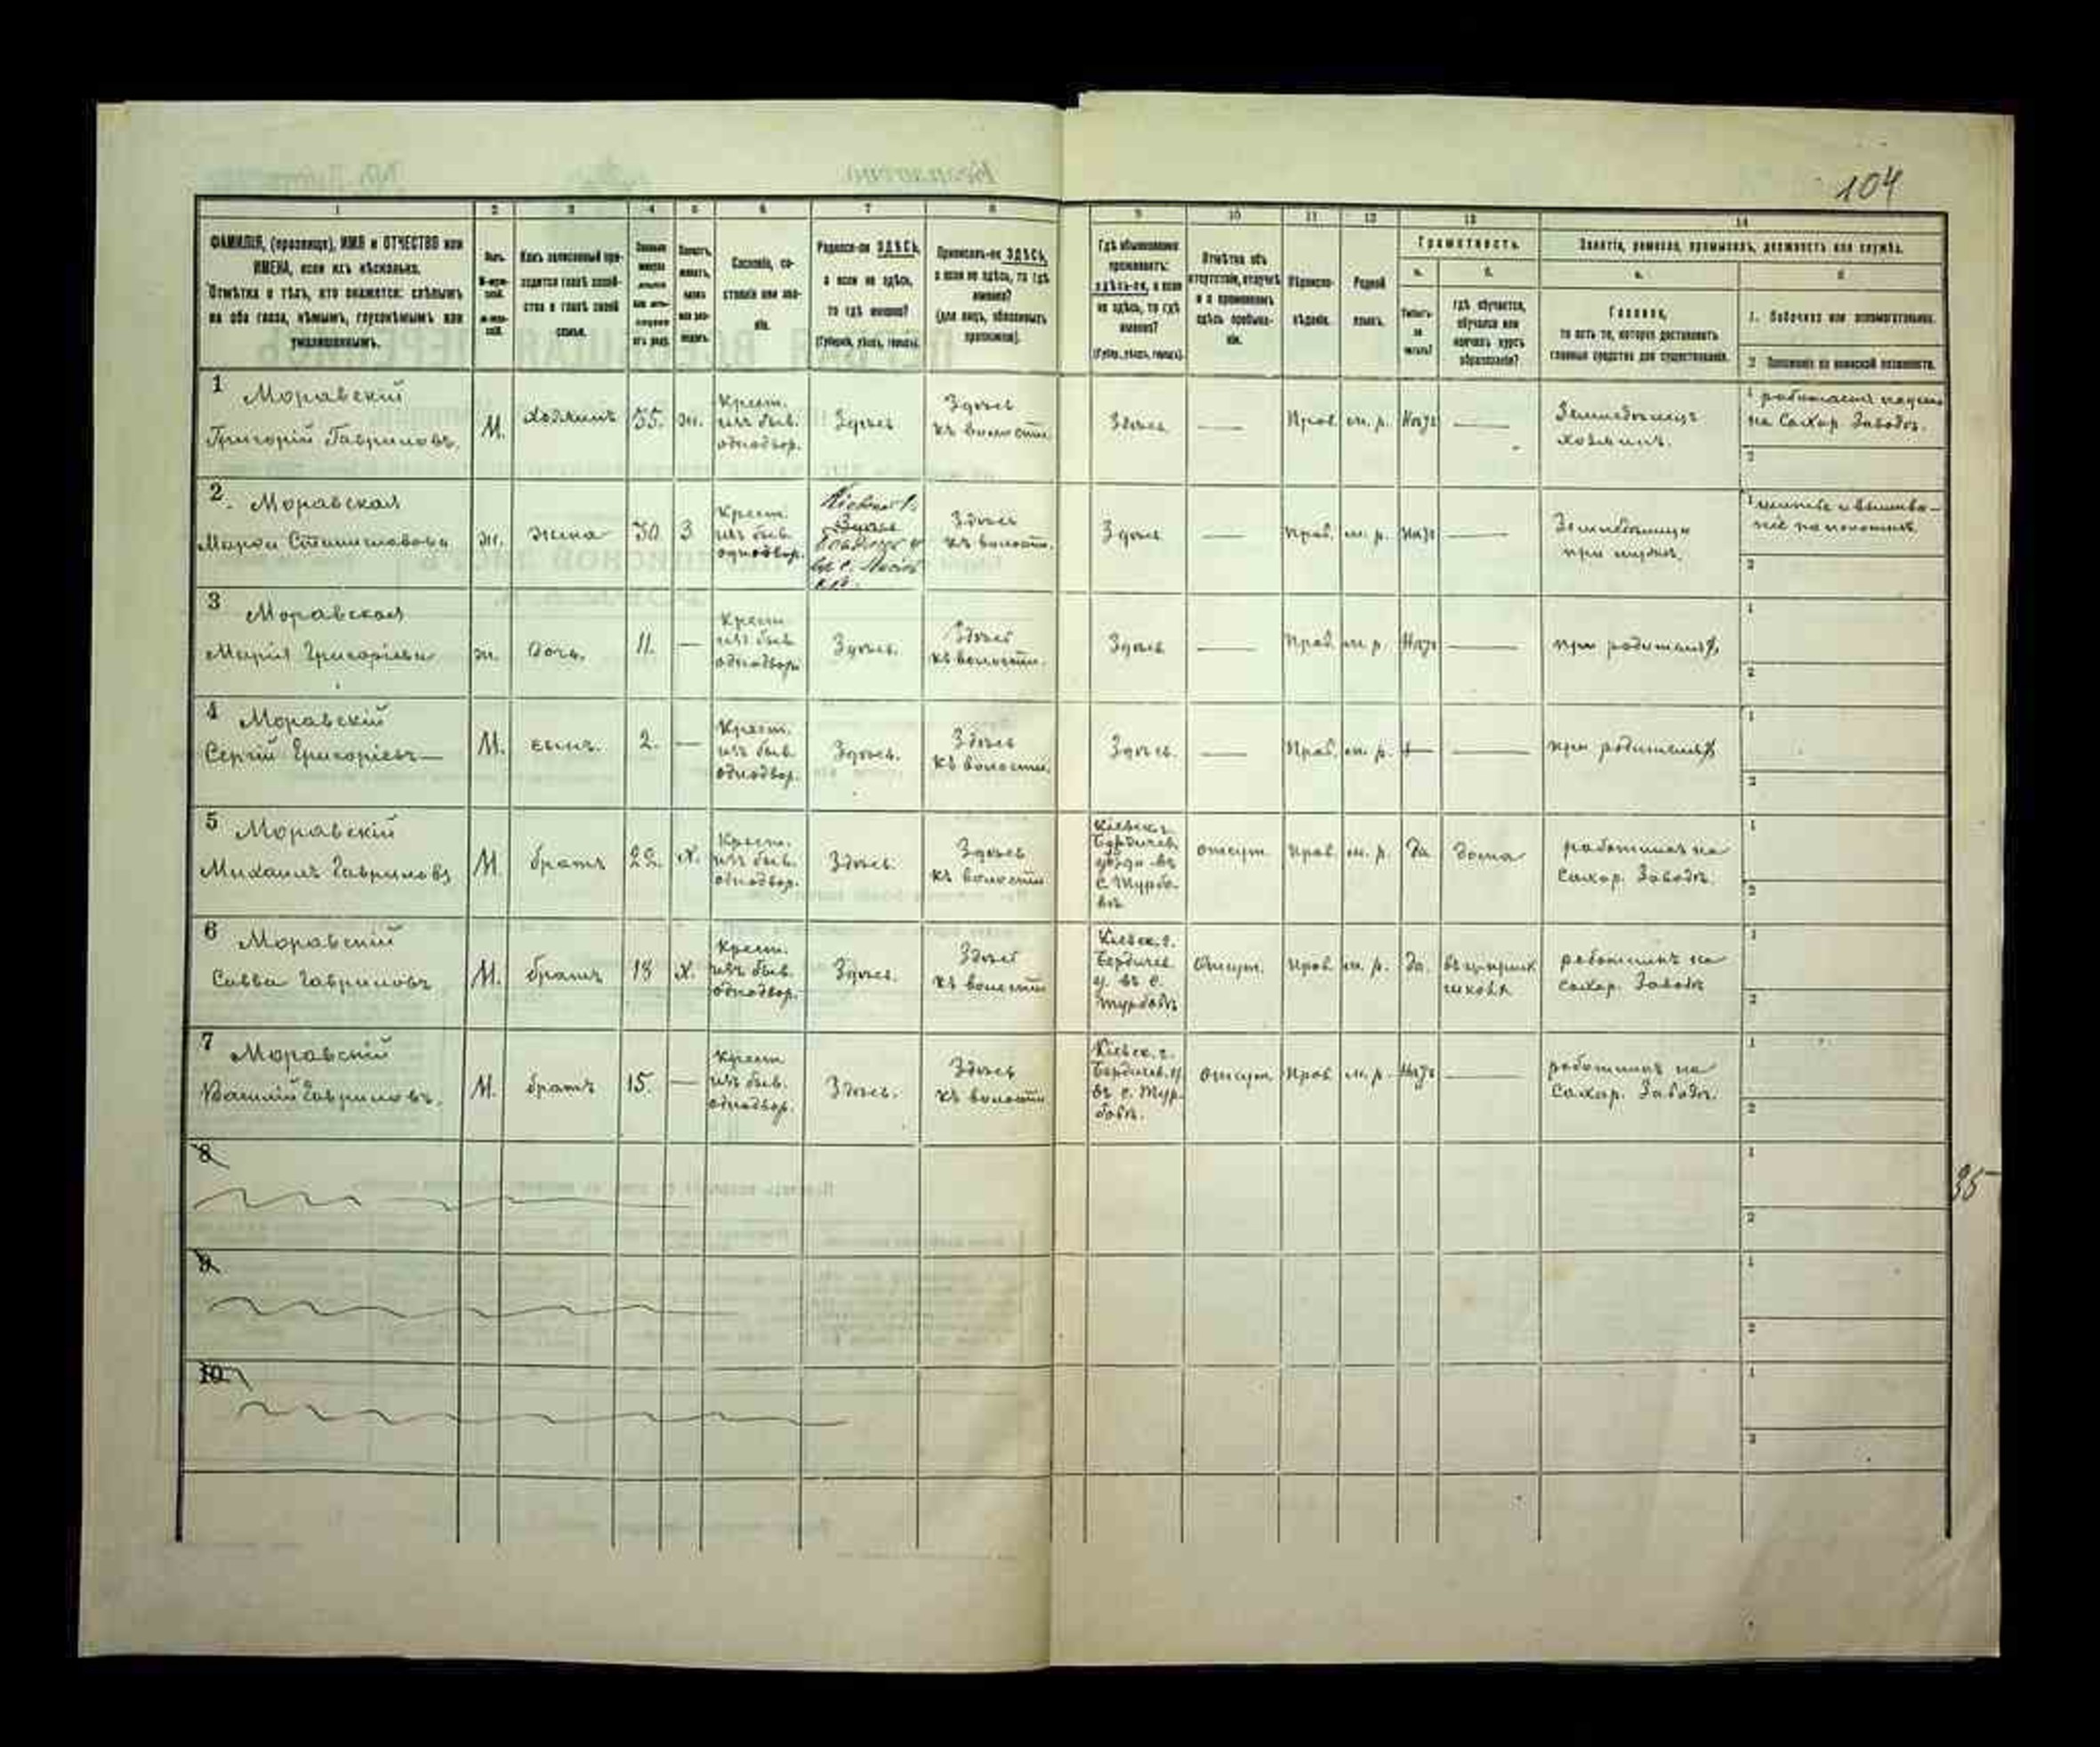 104
1 2 3 4 5 6 7 8 9 10 11 12 13 14
ФАМИЛІЯ, (прозвище), ИМЯ и ОТЧЕСТВО или
ИМЕНА, если ихъ нѣсколько.
Отмѣтка о тѣхъ, кто окажется: слѣпымъ
на оба глаза, нѣмымъ, глухонѣмымъ или
умалишеннымъ.
Полъ.
Какъ записанный при-
ходится главѣ хозяй-
ства и главѣ своей
семьи.
Сословіе, со-
стояніе или зва-
ніе.
Родился-ли ЗДѢСЬ,
а если не здѣсь,
то гдѣ именно?
(Губернія, уѣздъ, городъ).
Приписанъ-ли ЗДѢСЬ,
а если не здѣсь, то гдѣ
именно?
(для лицъ, обязанныхъ
припиской).
Гдѣ обыкновенно
проживаетъ:
здѣсь-ли, а если
не здѣсь, то гдѣ
именно?
(Губер., уѣздъ, городъ).
Отмѣтка объ
отсутствіи, отлучкѣ
и о временномъ
здѣсь пребыва-
ніи.
Вѣроиспо-
вѣданіе.
Родной
языкъ.
Грамотность.
а.
Умѣетъ-
ли
читать?
б.
гдѣ обучается,
обучался или
кончилъ курсъ
образованія?
Занятіе, ремесло, промыселъ, должность или служба.
а.
Главное,
то есть то, которое доставляетъ
главныя средства для существованія.
б
1. Побочное или вспомогательное.
2. Положеніе по воинской повинности.
1 Моравскій
Григорій Гавриловъ.
М. хозяинъ 35. ж.
Крест.
изъ быв.
однодвор.
Здѣсь
Здѣсь
къ волости
Здѣсь — Прав. м. р. Нѣтъ —
Земледѣлецъ
хозяинъ.
1 работаетъ
на Сахар. Заводѣ.
2
2. Моравская
Станиславова
ж. жена 30 3
Крест.
изъ быв.
однодвор.
Здѣсь
Здѣсь
къ волости.
Здѣсь — Прав. м. р. Нѣтъ —
при мужѣ.
1 шитье и вышива-
ніе
2
3 Моравская
Марія Григорьева
ж. дочь. 11. —
Крест.
изъ быв.
однодвор.
Здѣсь.
Здѣсь
къ волости.
Здѣсь — Прав. м. р. Нѣтъ —
при родителяхъ
1
2
4 Моравскій
Сергій Григоріевъ —
М. сынъ. 2. —
Крест.
изъ быв.
однодвор.
Здѣсь.
Здѣсь
къ волости.
Здѣсь. — Прав. м. р. — —
при родителяхъ
1
2
5 Моравскій
Михаилъ Гавриловъ
М. братъ 22. х.
Крест.
изъ быв.
однодвор.
Здѣсь.
Здѣсь
къ волости
Кіевск. г.
Бердичев.
уѣзда въ
с. Турбо-
вѣ
отсут. Прав. м. р. Да дома
работникъ на
Сахар. Заводѣ.
1
2
6 Моравскій
Савва Гавриловъ
М. братъ 18 х.
Крест.
изъ быв.
однодвор.
Здѣсь.
Здѣсь
къ волости
Кіевск. г.
Бердичев.
у. въ с.
Турбовѣ
Отсут. Прав. м. р. Да.
школѣ
работникъ на
сахар. Заводѣ
1
2
7 Моравскій
Василій Гавриловъ.
М. братъ 15. —
Крест
изъ быв.
однодвор.
Здѣсь.
Здѣсь
къ волости
Кіевск. г.
Бердичев. у
въ с. Тур-
бовѣ.
отсут Прав. м. р. Нѣтъ —
работникъ на
Сахар. Заводѣ.
1
2
8
1
2
35
9
1
2
10
1
2